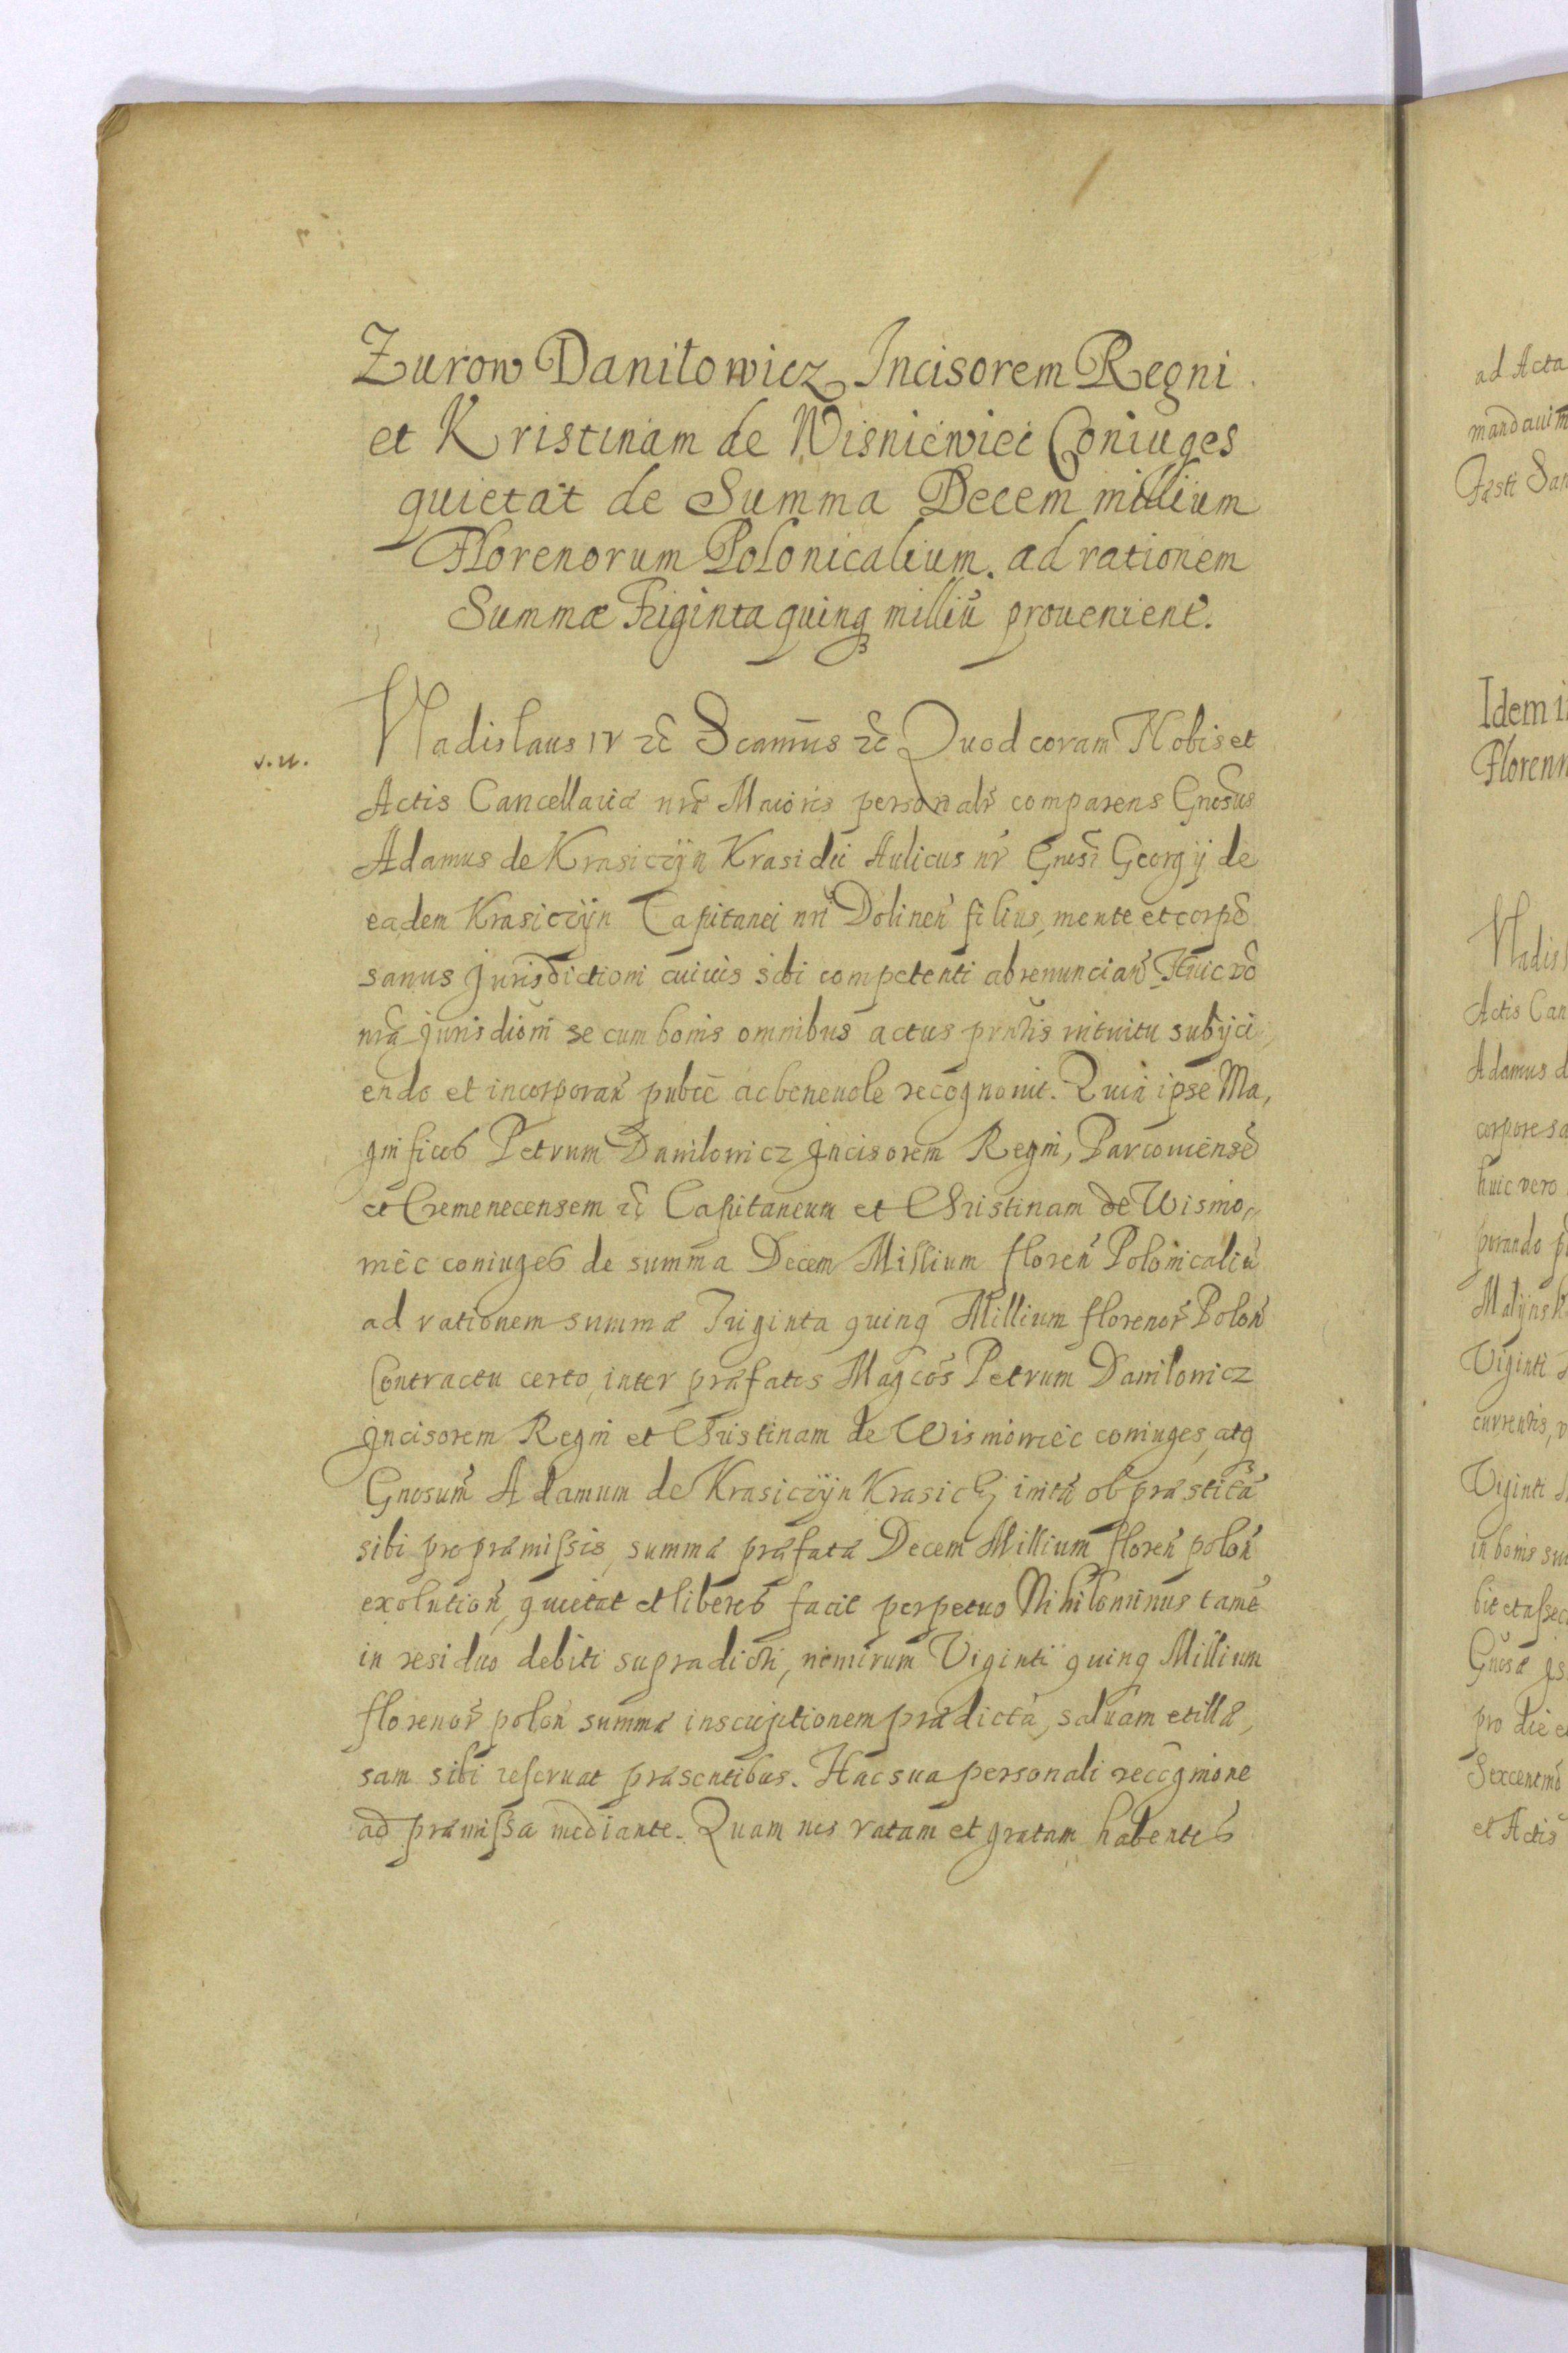 Zurow Daniłowicz Incisorem Regni
et Kristinam de Wisniewiec Coniuges
quietat de Summa Decem millium
Florenorum Polonicalium. ad rationem
Summæ Triginta quinq milliū prouenient.
v. u.
Vladislaus IV etc̄ Scām̄us etc̄ Quod coram Nobis et
Actis Cancellariæ nr̄æ Maioris personalr̄ comparens Gnosus
Adamus de Krasiczÿn Krasicki Aulicus nr̄ Gnosi Georgÿ de
eadem Krasiczÿn Capitanei nri Dolinen̄ filius, mente et corpē
sanus Jurisdictioni cuiuis sibi competenti abrenuncian̄ Huic vō
nr̄æ Jurisdiōni se cum bonis omnibus actus pr̄ntis intuitu subÿci,
endo et incorporan̄ publcē ac beneuole recognouit. Quia ipse Ma,
gnificos Petrum Danilowicz Incisorem Regni, Parcouiensē
et Cremenecensem etc̄ Capitaneum et Christinam de Wisnio,
wiec coniuges de summa Decem Millium floren̄ Polonicaliū
ad rationem summæ Triginta quinq Millium florenor̄ Polon̄
Contractu certo inter præfatos Magcos Petrum Danilowicz
Incisorem Regni et Christinam de Wisniowiec coniuges, atq
Gnosum̄ Adamum de Krasiczÿn Krasicki initā ob præstitā
sibi pro præmissis, summæ præfatæ Decem Millium floren̄ polon̄
exolution̄, quietat et liberos facit perpetuo Nihilominus tamē
in residuo debiti supradicti, nimirum Viginti quinq Millium
florenor̄ polon̄ summæ inscriptionem prædictā, saluam et illæ,
sam sibi reseruat præsentibus. Hac sua personali recognitione
ad præmissa mediante. Quam nos ratam et gratam habentes
ad Acta
Idem i
Actis Can
Adamus d
huic vero
Viginti
Viginti
et Actis